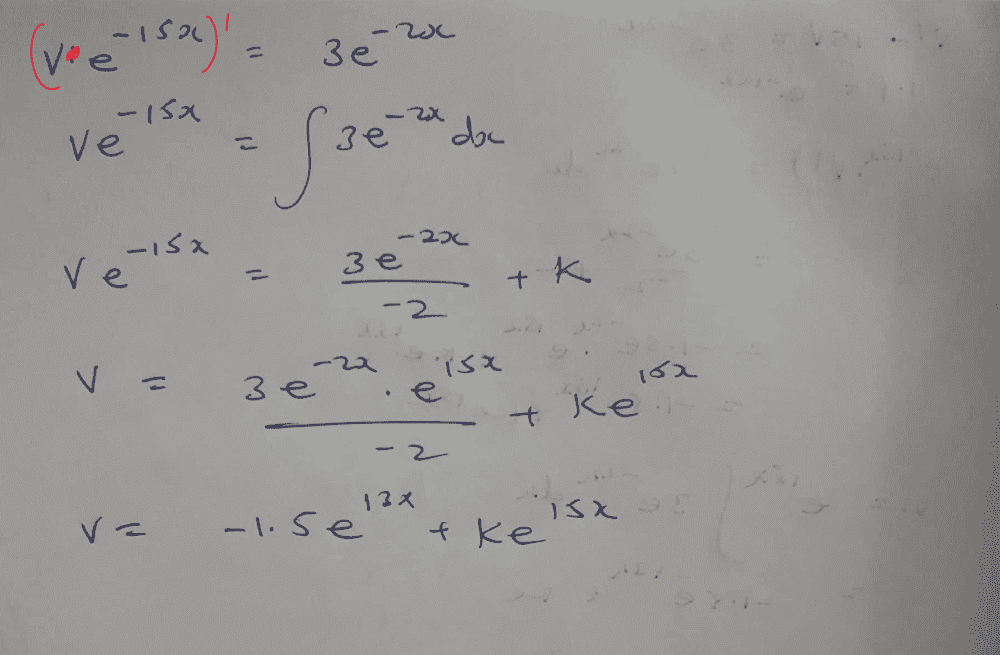 (v·e^{-15x})' = 3e^{-2x}
ve^{-15x} = ∫ 3e^{-2x} dx
ve^{-15x} = \frac{3e^{-2x}}{-2} + K
v = \frac{3e^{-2x} . e^{15x}}{-2} + Ke^{15x}
v = -1.5e^{13x} + Ke^{15x}